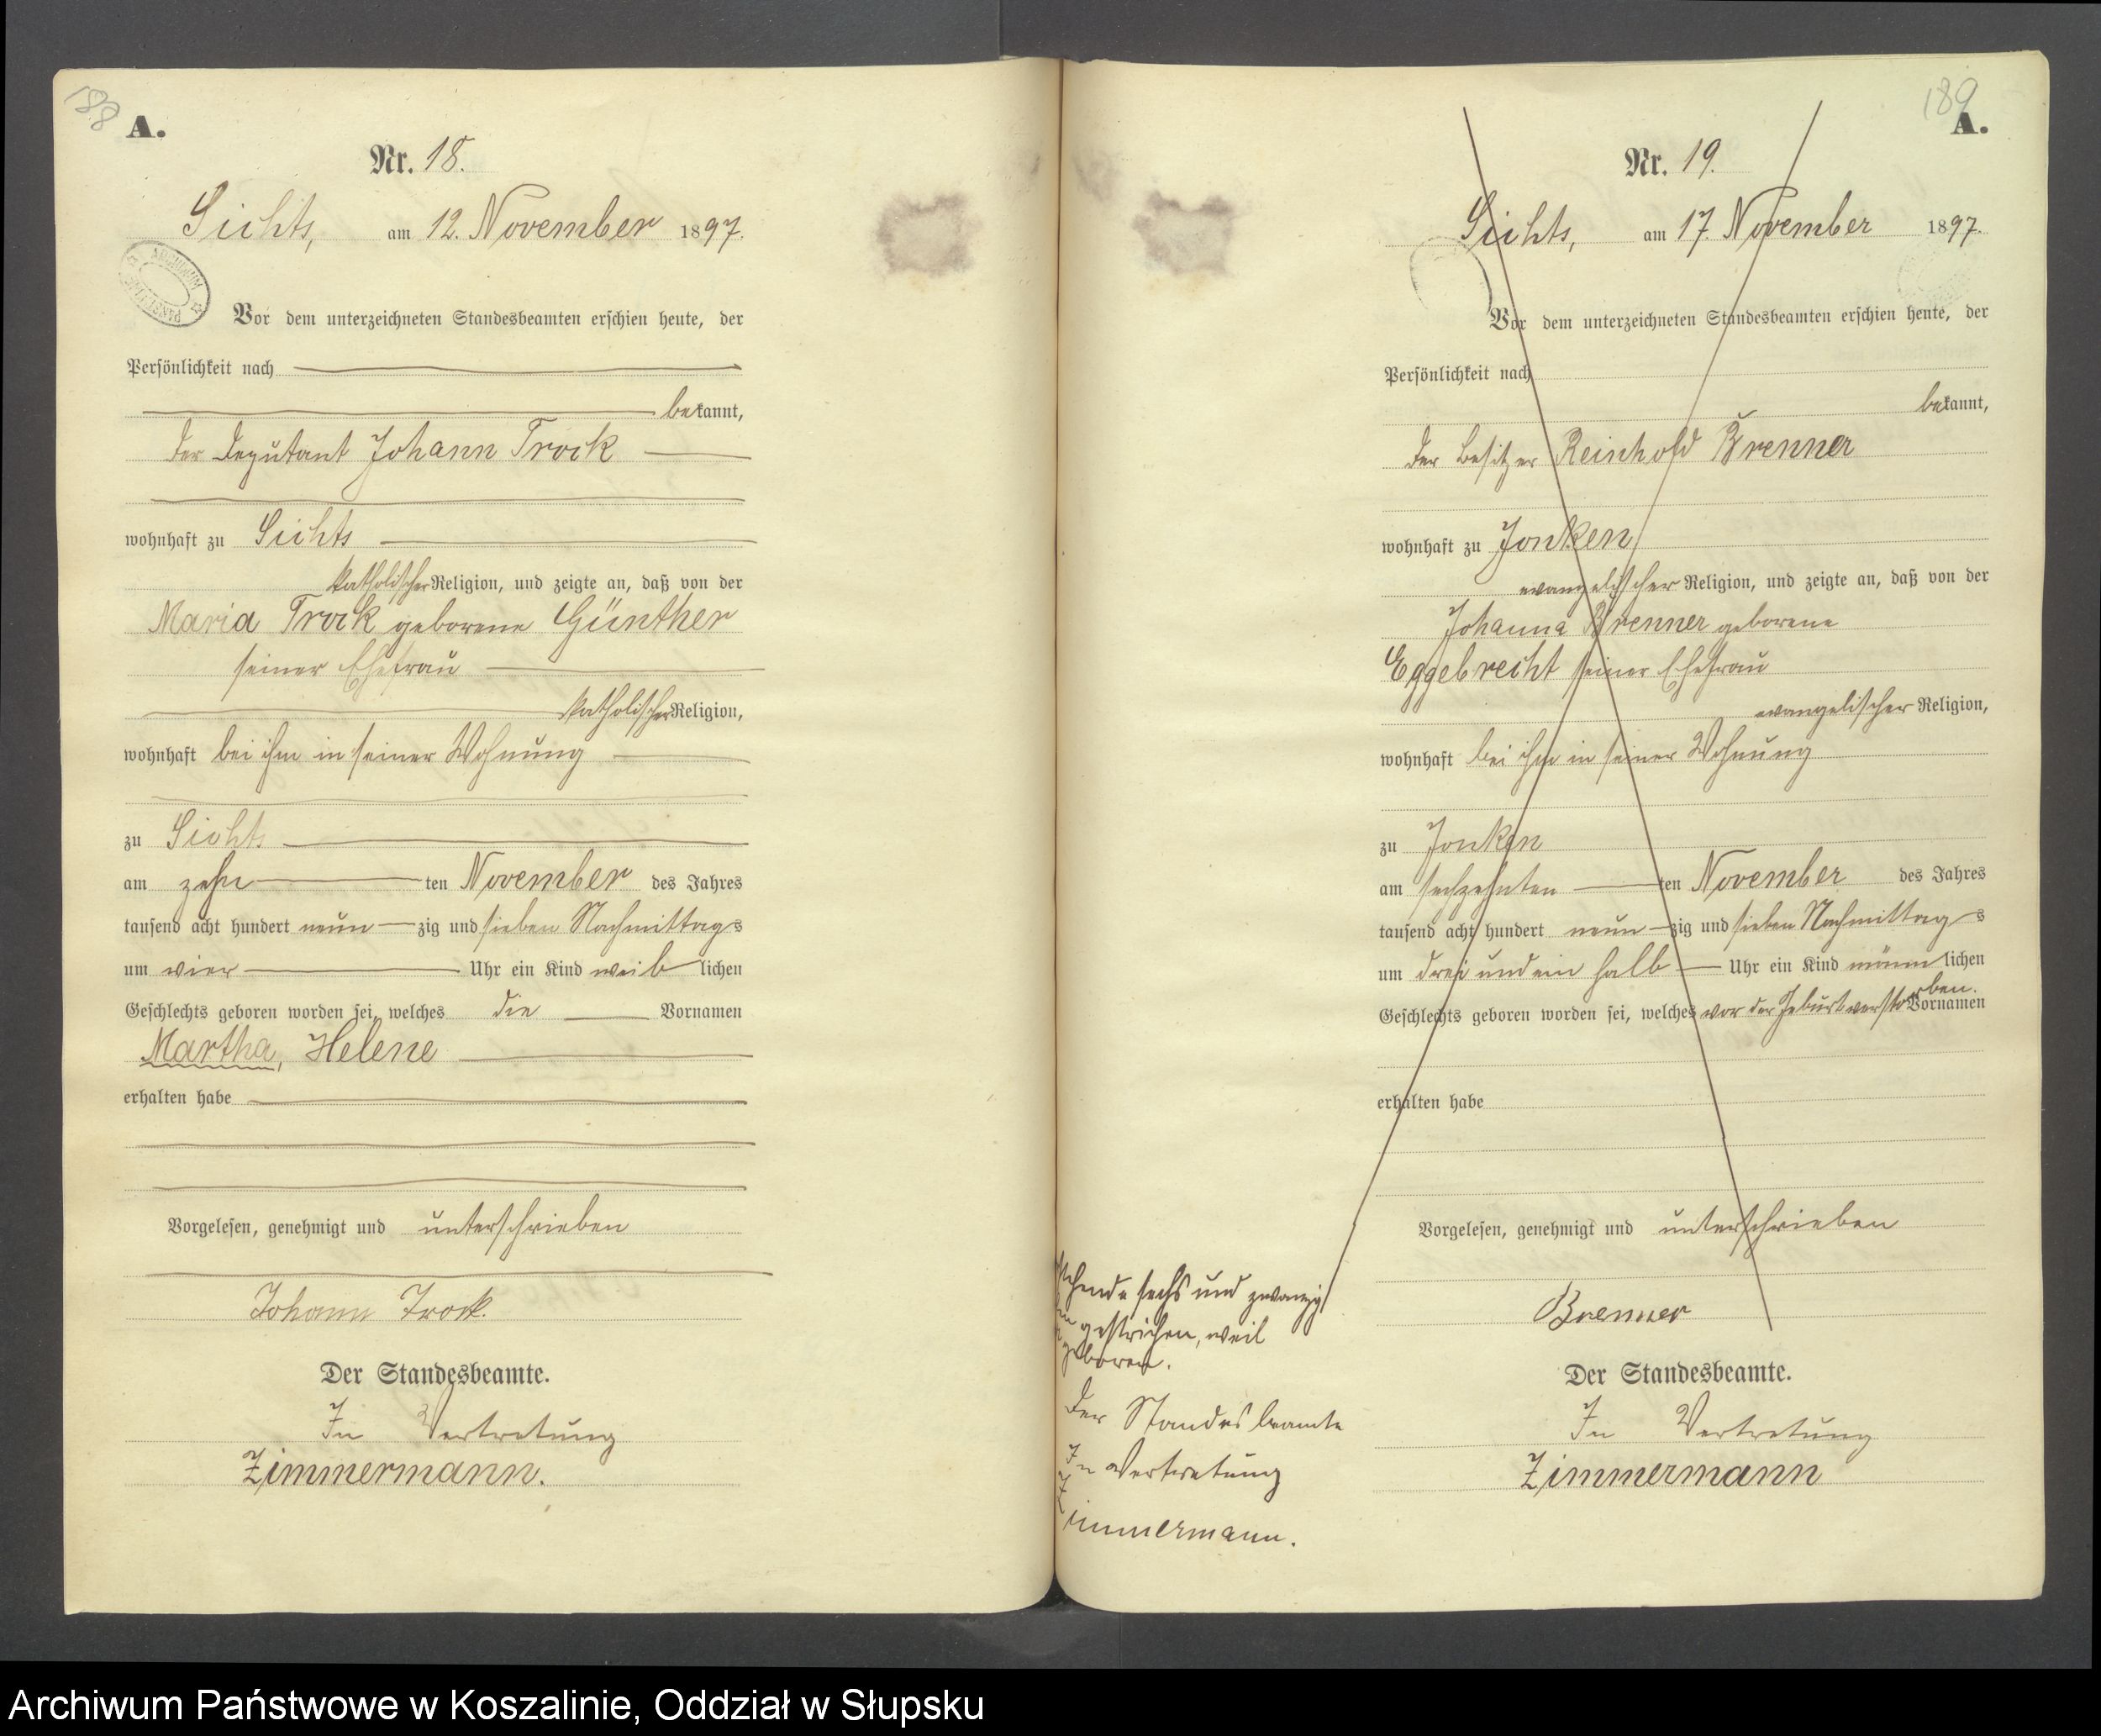 188
A.
Nr. 18.
Sichts, am 12. November 1897.
ARCHIWUM PAŃSTW
Vor dem unterzeichneten Standesbeamten erschien heute, der
Persönlichkeit nach
bekannt,
der Deputant Johann Trock
wohnhaft zu Sichts
katholischer Religion, und zeigte an, daß von der
Maria Trock geborene Günther
seiner Ehefrau
katholischer Religion,
wohnhaft bei ihm in seiner Wohnung
zu Sichts
am zehn ten November des Jahres
tausend acht hundert neun zig und sieben Nachmittags
um vier Uhr ein Kind weib lichen
Geschlechts geboren worden sei, welches die Vornamen
Martha, Helene
erhalten habe
Vorgelesen, genehmigt und unterschrieben
Johann Trock.
Der Standesbeamte.
In Vertretung
Zimmermann.
189
A.
Nr. 19.
Sichts, am 17. November 1897.
Vor dem unterzeichneten Standesbeamten erschien heute, der
Persönlichkeit nach
bekannt,
der Besitzer Reinhold Brenner
wohnhaft zu Jonken
evangelischer Religion, und zeigte an, daß von der
Johanna Brenner geborene
Eggebrecht seiner Ehefrau
evangelischer Religion,
wohnhaft bei ihm in seiner Wohnung
zu Jonken
am sechzehnten ten November des Jahres
tausend acht hundert neun zig und sieben Nachmittags
um drei und ein halb Uhr ein Kind männ lichen
Geschlechts geboren worden sei, welches vor der Geburt verstorben. Vornamen
erhalten habe
Vorgelesen, genehmigt und unterschrieben
Brenner
Der Standesbeamte.
In Vertretung
Zimmermann
stehende sechs und zwanzig
gestrichen, weil
geboren.
Der Standesbeamte
In Vertretung
Zimmermann.
Archiwum Państwowe w Koszalinie, Oddział w Słupsku